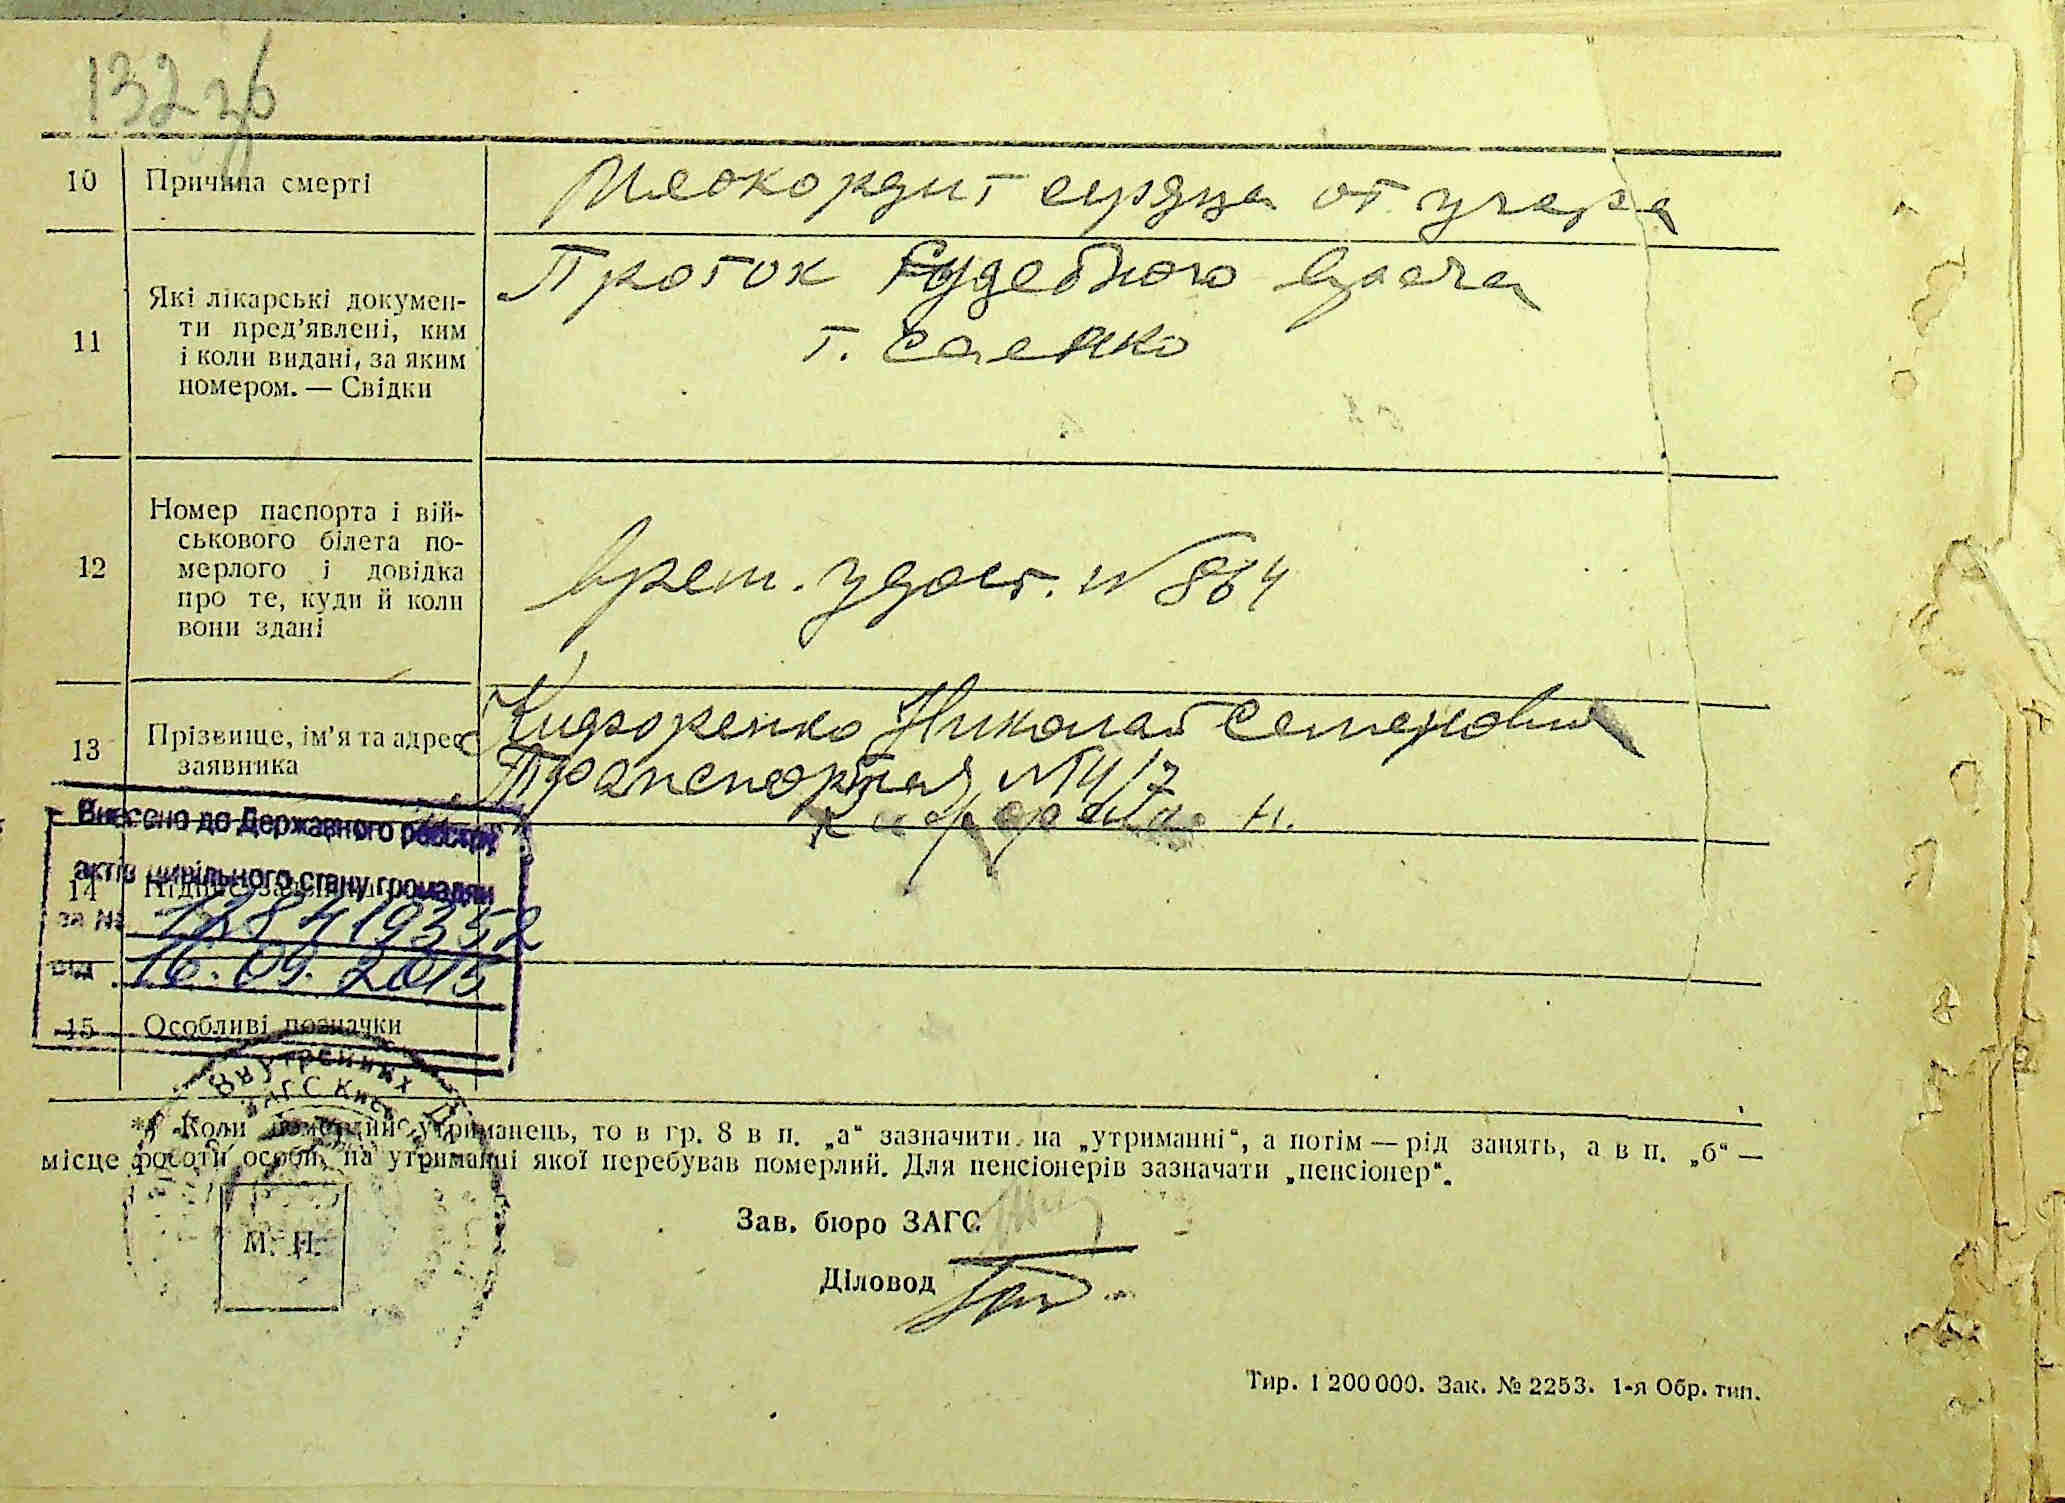 132 зб
10 Причина смерті
Миокордит сердца от угара
11 Які лікарські докумен-
ти пред'явлені, ким
і коли видані, за яким
номером. — Свідки
Проток Судебного врача
г. Саенко
12 Номер паспорта і вій-
ськового білета по-
мерлого і довідка
про те, куди й коли
вони здані
врем. удост. № 864
13 Прізвище, ім'я та адрес
заявника
Николай Семенович
Транспортная №
Н.
Внесено до Державного реєстру
актів цивільного стану громадян
14
за № 1284193352
від 16.09.2015
15 Особливі позначки
Внутренних
ЗАГС Киевс
*) Коли померлий утриманець, то в гр. 8 в п. „а“ зазначити на „утриманні“, а потім — рід занять, а в п. „б“ —
місце роботи особи, на утриманні якої перебував померлий. Для пенсіонерів зазначати „пенсіонер“.
Зав. бюро ЗАГС
М. П.
Діловод
Тир. 1 200 000. Зак. № 2253. 1-я Обр. тип.